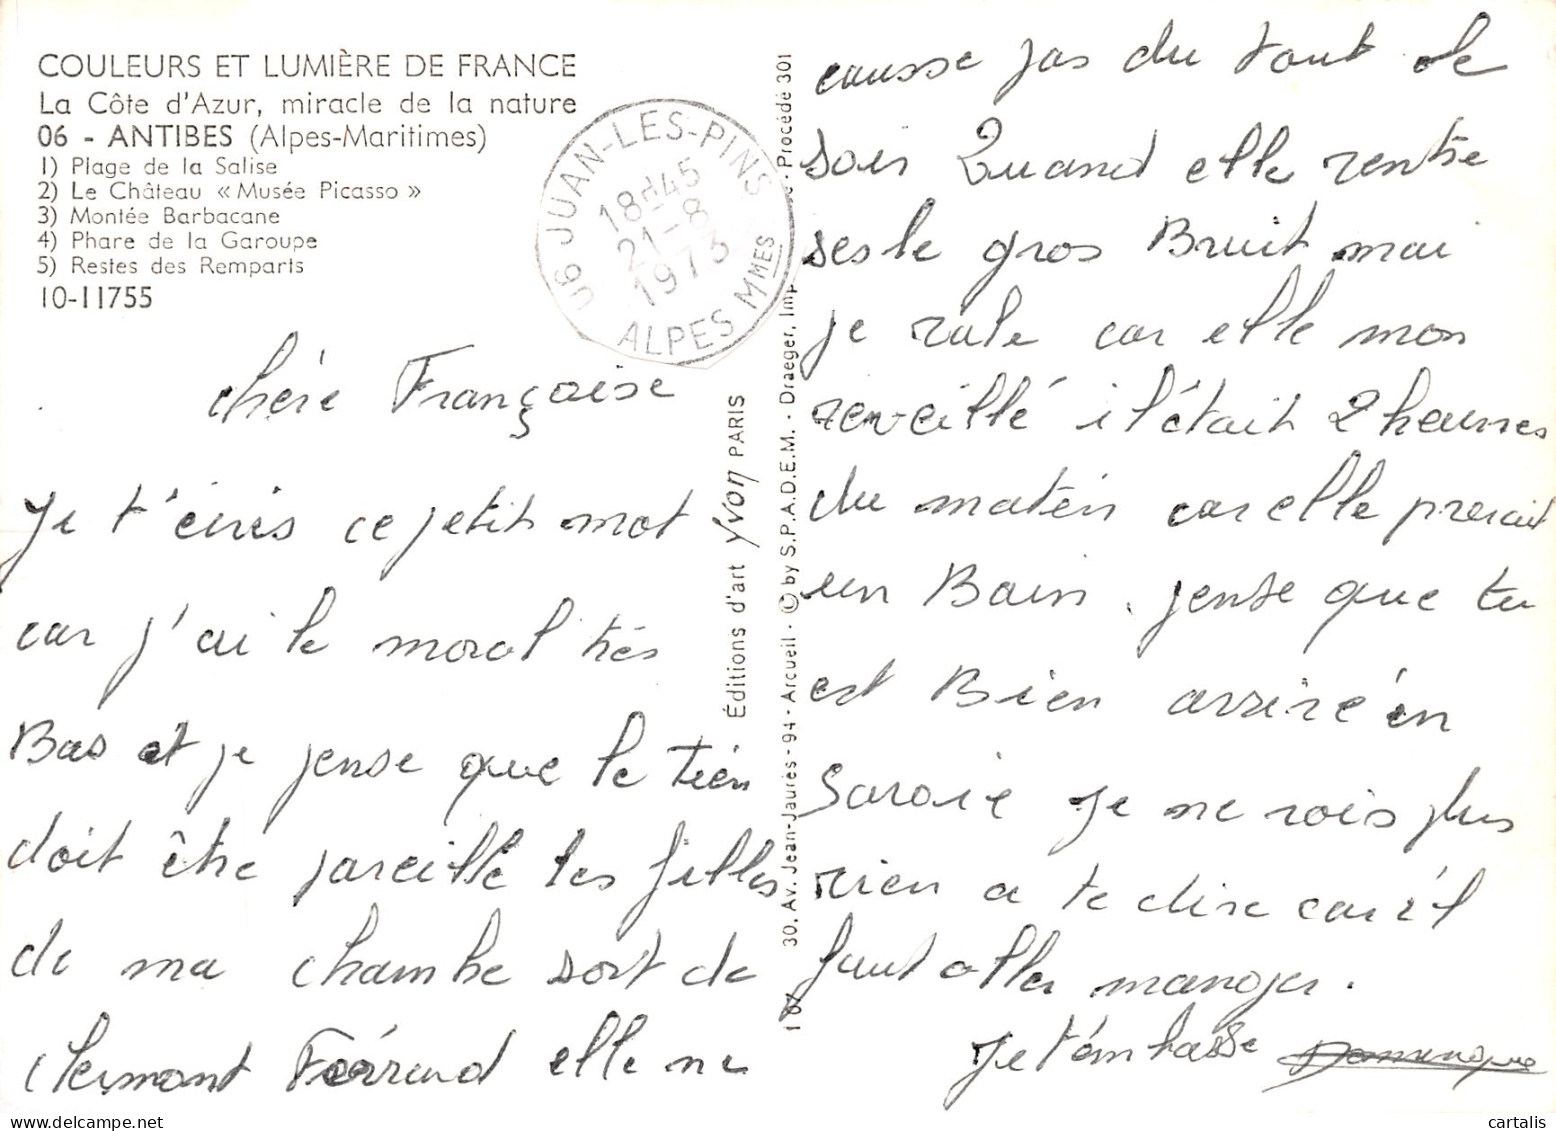 COULEURS ET LUMIÈRE DE FRANCE
La Côte d'Azur, miracle de la nature
06 - ANTIBES (Alpes-Maritimes)
1) Plage de la Salise
2) Le Château « Musée Picasso »
3) Montée Barbacane
4) Phare de la Garoupe
5) Restes des Remparts
10-11755
06 JUAN-LES-PINS
18H45
21-8
1973
ALPES MMES
chére Françoise
Je t'éiris ce petit mot
car j'ai le moral trés
Bas et je pense que le tién
doit être pareille les filles
de ma chambre sort de
clermont Férrand elle ne
Éditions d'art Yvon PARIS
30, Av. Jean-Jaurès - 94 - Arcueil - © by S.P.A.D.E.M. - Draeger, Imp - Procédé 301
causse pas du tout le
soir Quand elle rentre
ses le gros Bruit mai
je rale car elle mon
reveillé il était 2 heures
du matin car elle prenait
un Bain. pense que tu
est Bien arrivé én
Savoie je ne vois plus
rien a te dire car il
faut aller manger.
Je t'émbasse Dominique
cartalis